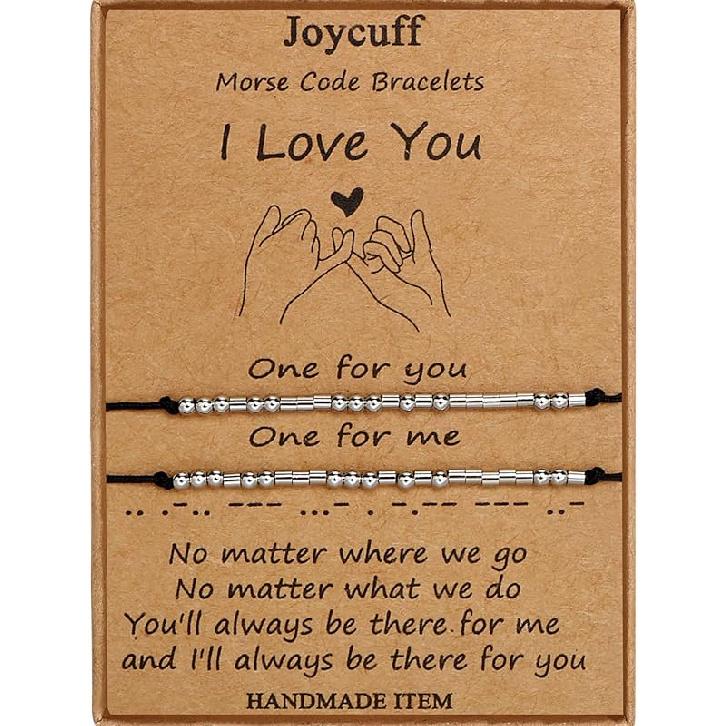 Joycuff
Morse Code Bracelets
I Love You
One for you
One for me
.. .-.. --- ...- . -.-- --- ..-
No matter where we go
No matter what we do
You'll always be there for me
and I'll always be there for you
HANDMADE ITEM